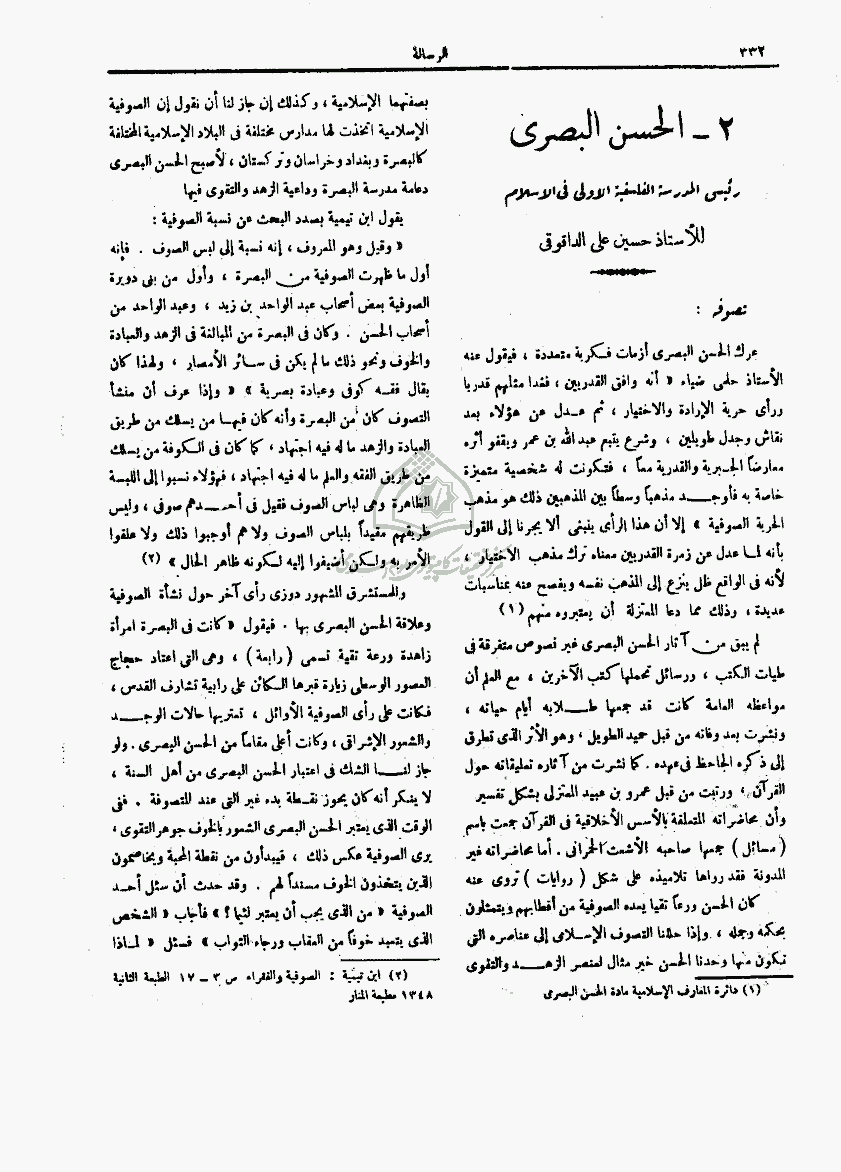 ٣٣٢
الرسالة
٢ - الحسن البصرى
رئيس المدرسة الفلسفية الاولى فى الاسلام
للأستاذ حسين على الداقوقى
تصوفه :
عرك الحسن البصرى أزمات فكرية متعددة ، فيقول عنه
الأستاذ حلمى ضياء « أنه وافق القدريين ، فغدا مثلهم قدريا
ورأى حرية الإرادة والاختيار ، ثم عدل عن هؤلاء بعد
نقاش وجدل طويلين ، وشرع يتبع عبد الله بن عمر ويقفو أثره
معارضاً الجبرية والقدرية معاً ، فتكونت له شخصية متميزة
خاصة به فأوجد مذهباً وسطاً بين المذهبين ذلك هو مذهب
الحرية الصوفية » إلا أن هذا الرأى ينبغى ألا يجرنا إلى القول
بأنه لما عدل عن زمرة القدريين معناه ترك مذهب الاختيار ،
لأنه فى الواقع ظل ينزع إلى المذهب نفسه ويفصح عنه بمناسبات
عديدة ، وذلك مما دعا المعتزلة أن يعتبروه منهم (١)
لم يبق من آثار الحسن البصرى غير نصوص متفرقة فى
طيات الكتب ، ورسائل تحملها كتب الآخرين ، مع العلم أن
مواعظه العامة كانت قد جمعها طلابه أيام حياته ،
ونشرت بعد وفاته من قبل حميد الطويل ، وهو الأثر الذى تطرق
إلى ذكره الجاحظ فى عهده . كما نشرت من آثاره تعليقاته حول
القرآن ، ورتبت من قبل عمرو بن عبيد المعتزلى بشكل تفسير
وأن محاضراته المتعلقة بالأسس الأخلاقية فى القرآن جمعت باسم
( مسائل ) جمعها صاحبه الأشعث الحمرانى . أما محاضراته غير
المدونة فقد رواها تلاميذه على شكل ( روايات ) تروى عنه
كان الحسن ورعاً تقيا يعده الصوفية من أقطابهم ويتمثلون
بحكمه وجمله ، وإذا حللنا التصوف الإسلامى إلى عناصره التى
تتكون منها وجدنا الحسن خير مثال لعنصر الزهد والتقوى
(١) دائرة المعارف الإسلامية مادة الحسن البصرى
بصفتهما الإسلامية ، وكذلك إن جاز لنا أن نقول إن الصوفية
الإسلامية اتخذت لها مدارس مختلفة فى البلاد الإسلامية المختلفة
كالبصرة وبغداد وخراسان وتركستان ، لأصبح الحسن البصرى
دعامة مدرسة البصرة وداعية الزهد والتقوى فيها
يقول ابن تيمية بصدد البحث عن نسبة الصوفية :
« وقيل وهو المعروف ، إنه نسبة إلى لبس الصوف . فإنه
أول ما ظهرت الصوفية من البصرة ، وأول من بنى دويرة
الصوفية بعض أصحاب عبد الواحد بن زيد ، وعبد الواحد من
أصحاب الحسن . وكان فى البصرة من المبالغة فى الزهد والعبادة
والخوف ونحو ذلك ما لم يكن فى سائر الأمصار ، ولهذا كان
يقال فقه كوفى وعبادة بصرية » « وإذا عرف أن منشأ
التصوف كان من البصرة وأنه كان فيها من يسلك من طريق
العبادة والزهد ما له فيه اجتهاد ، كما كان فى الكوفة من يسلك
من طريق الفقه والعلم ما له فيه اجتهاد ، فهؤلاء نسبوا إلى اللبسة
الظاهرة وهى لباس الصوف فقيل فى أحدهم صوفى ، وليس
طريقهم مقيداً بلباس الصوف ولا هم أوجبوا ذلك ولا علقوا
الأمر به ولكن أضيفوا إليه لكونه ظاهر الحال » (٢)
وللمستشرق المشهور دوزى رأى آخر حول نشأة الصوفية
وعلاقة الحسن البصرى بها . فيقول « كانت فى البصرة امرأة
زاهدة ورعة تقية تسمى ( رابعة ) ، وهى التى اعتاد حجاج
العصور الوسطى زيارة قبرها الكائن على رابية تشارف القدس ،
فكانت على رأى الصوفية الأوائل ، تعتريها حالات الوجد
والشعور الإشراقى ، وكانت أعلى مقاماً من الحسن البصرى . ولو
جاز لنا الشك فى اعتبار الحسن البصرى من أهل السنة ،
لا ينكر أنه كان يحوز نقطة بدء غير التى عند المتصوفة . ففى
الوقت الذى يعتبر الحسن البصرى الشعور بالخوف جوهر التقوى ،
يرى الصوفية عكس ذلك ، فيبدأون من نقطة المحبة ويخاصمون
الذين يتخذون الخوف مسنداً لهم . وقد حدث أن سئل أحد
الصوفية « من الذى يجب أن يعتبر لئيما ؟ » فأجاب « الشخص
الذى يتعبد خوفاً من العقاب ورجاء الثواب » فسئل « لماذا
(٢) ابن تيمية : الصوفية والفقراء ص ٣ - ١٧ الطبعة الثانية
١٣٤٨ مطبعة المنار